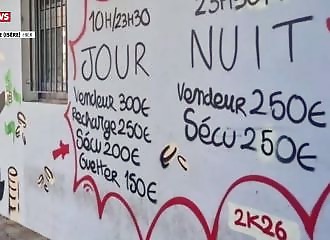 NEWS
(ISÈRE)
10H/23H30
JOUR
Vendeur 300€
Recharge 250€
Sécu 200€
Guetter 150€
23H30
NUIT
Vendeur 250€
Sécu 250€
2K26